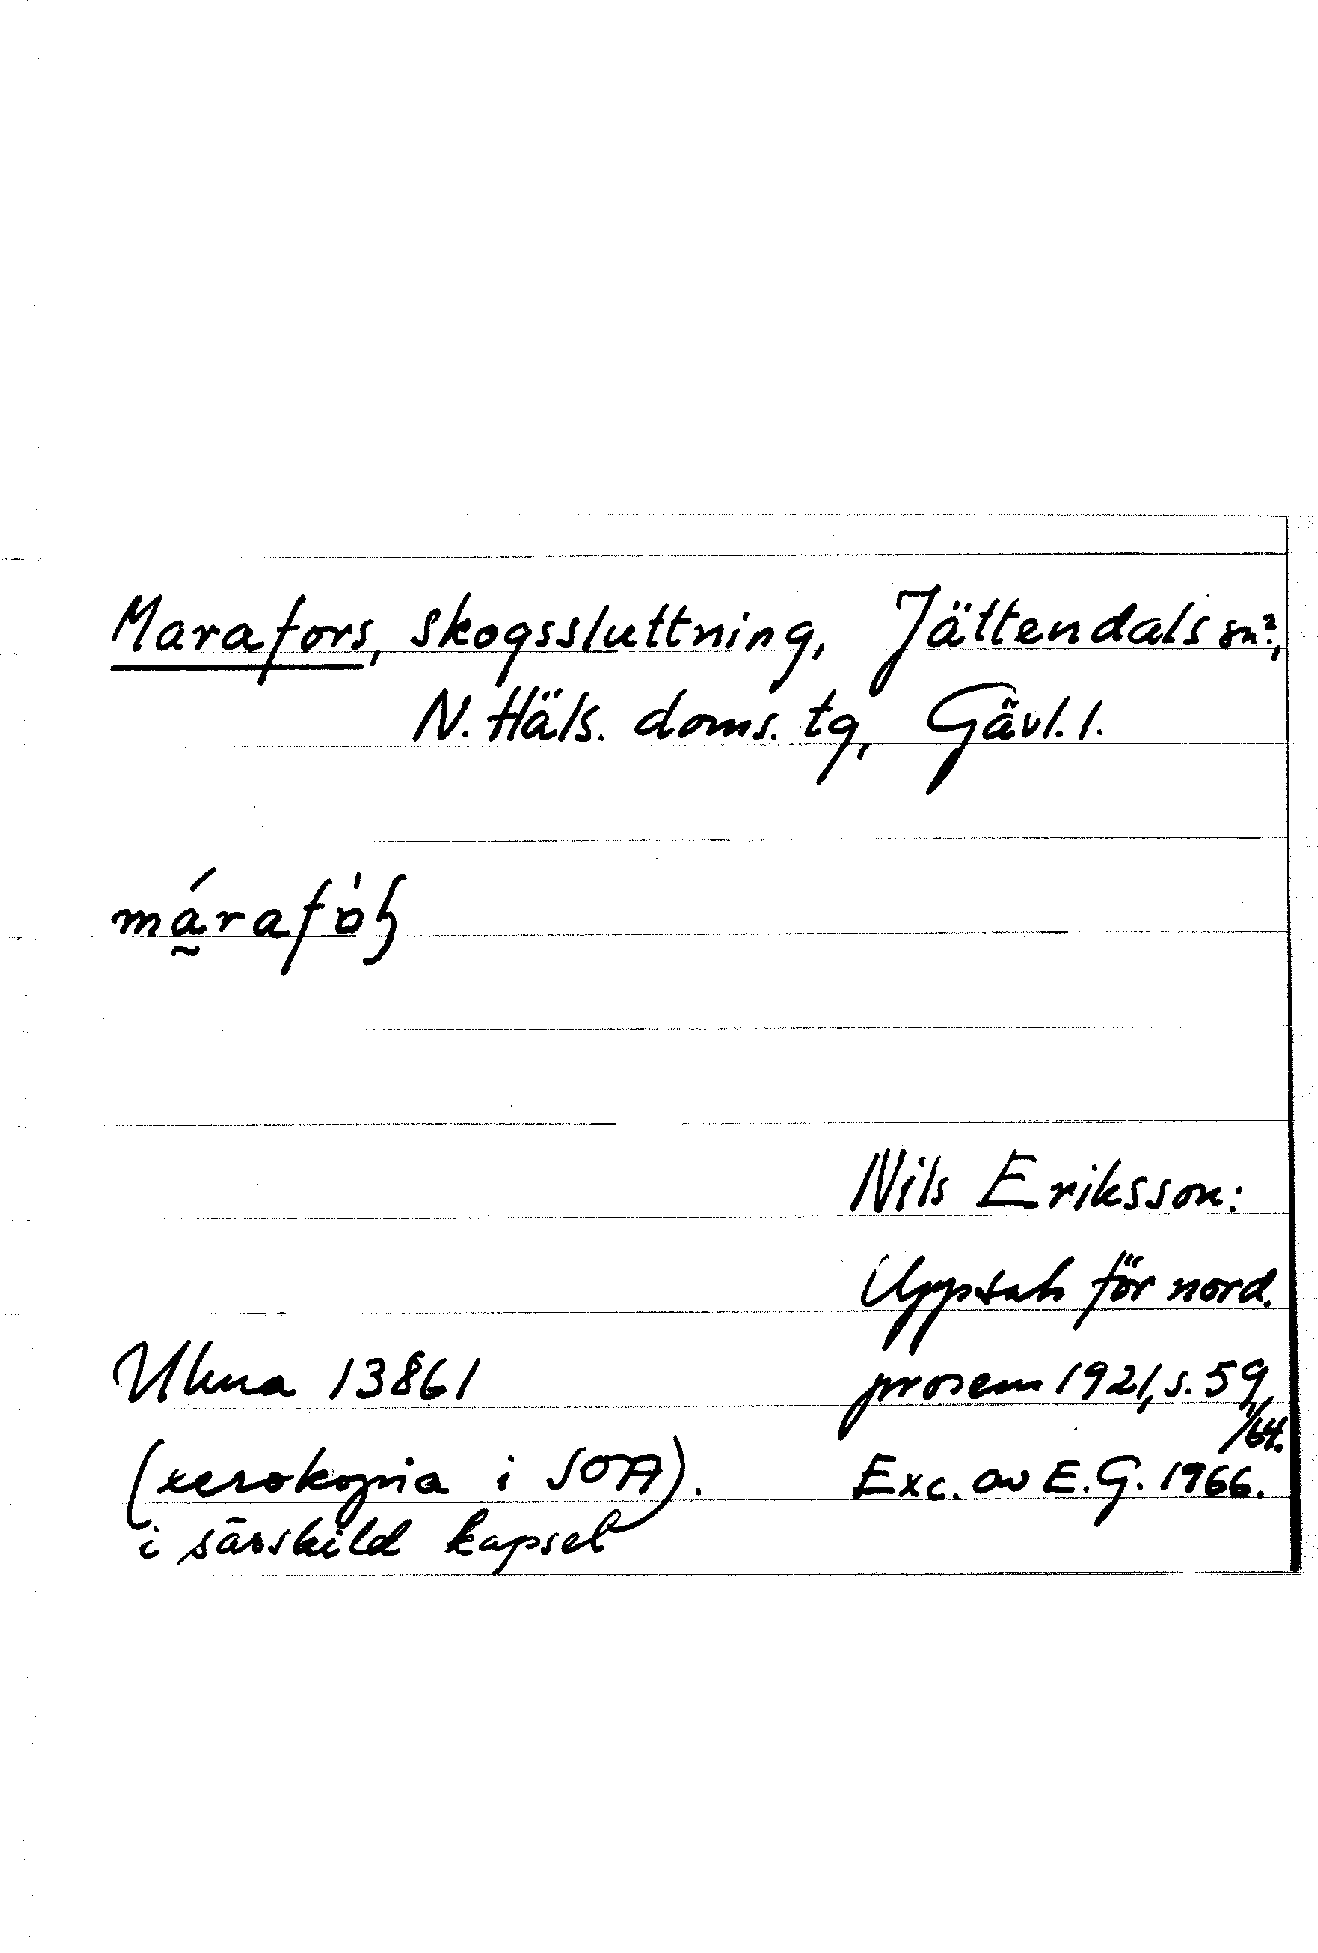 Marafors, skogssluttning, Jättendals sn?,
N. Häls. doms. tg, Gävl. l.
Nils Eriksson:
Uppsats för nord.
Ukna 13861
prosem 1921, s. 59
/64.
(xerokopia i SOA).
Exc. av E.G. 1966.
i särskild kapsel